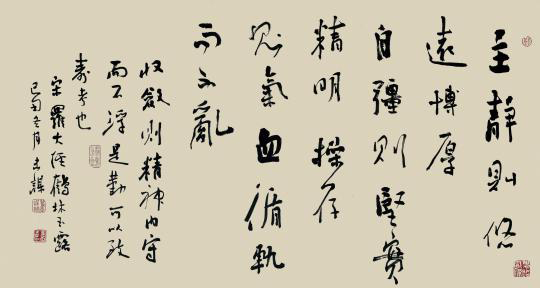 主靜則悠
遠博厚
自彊則堅實
精明操存
則氣血循軌
而不亂
收斂則精神內守
而不浮是勤可以致
壽考也
宋羅大經鶴林玉露
冬月